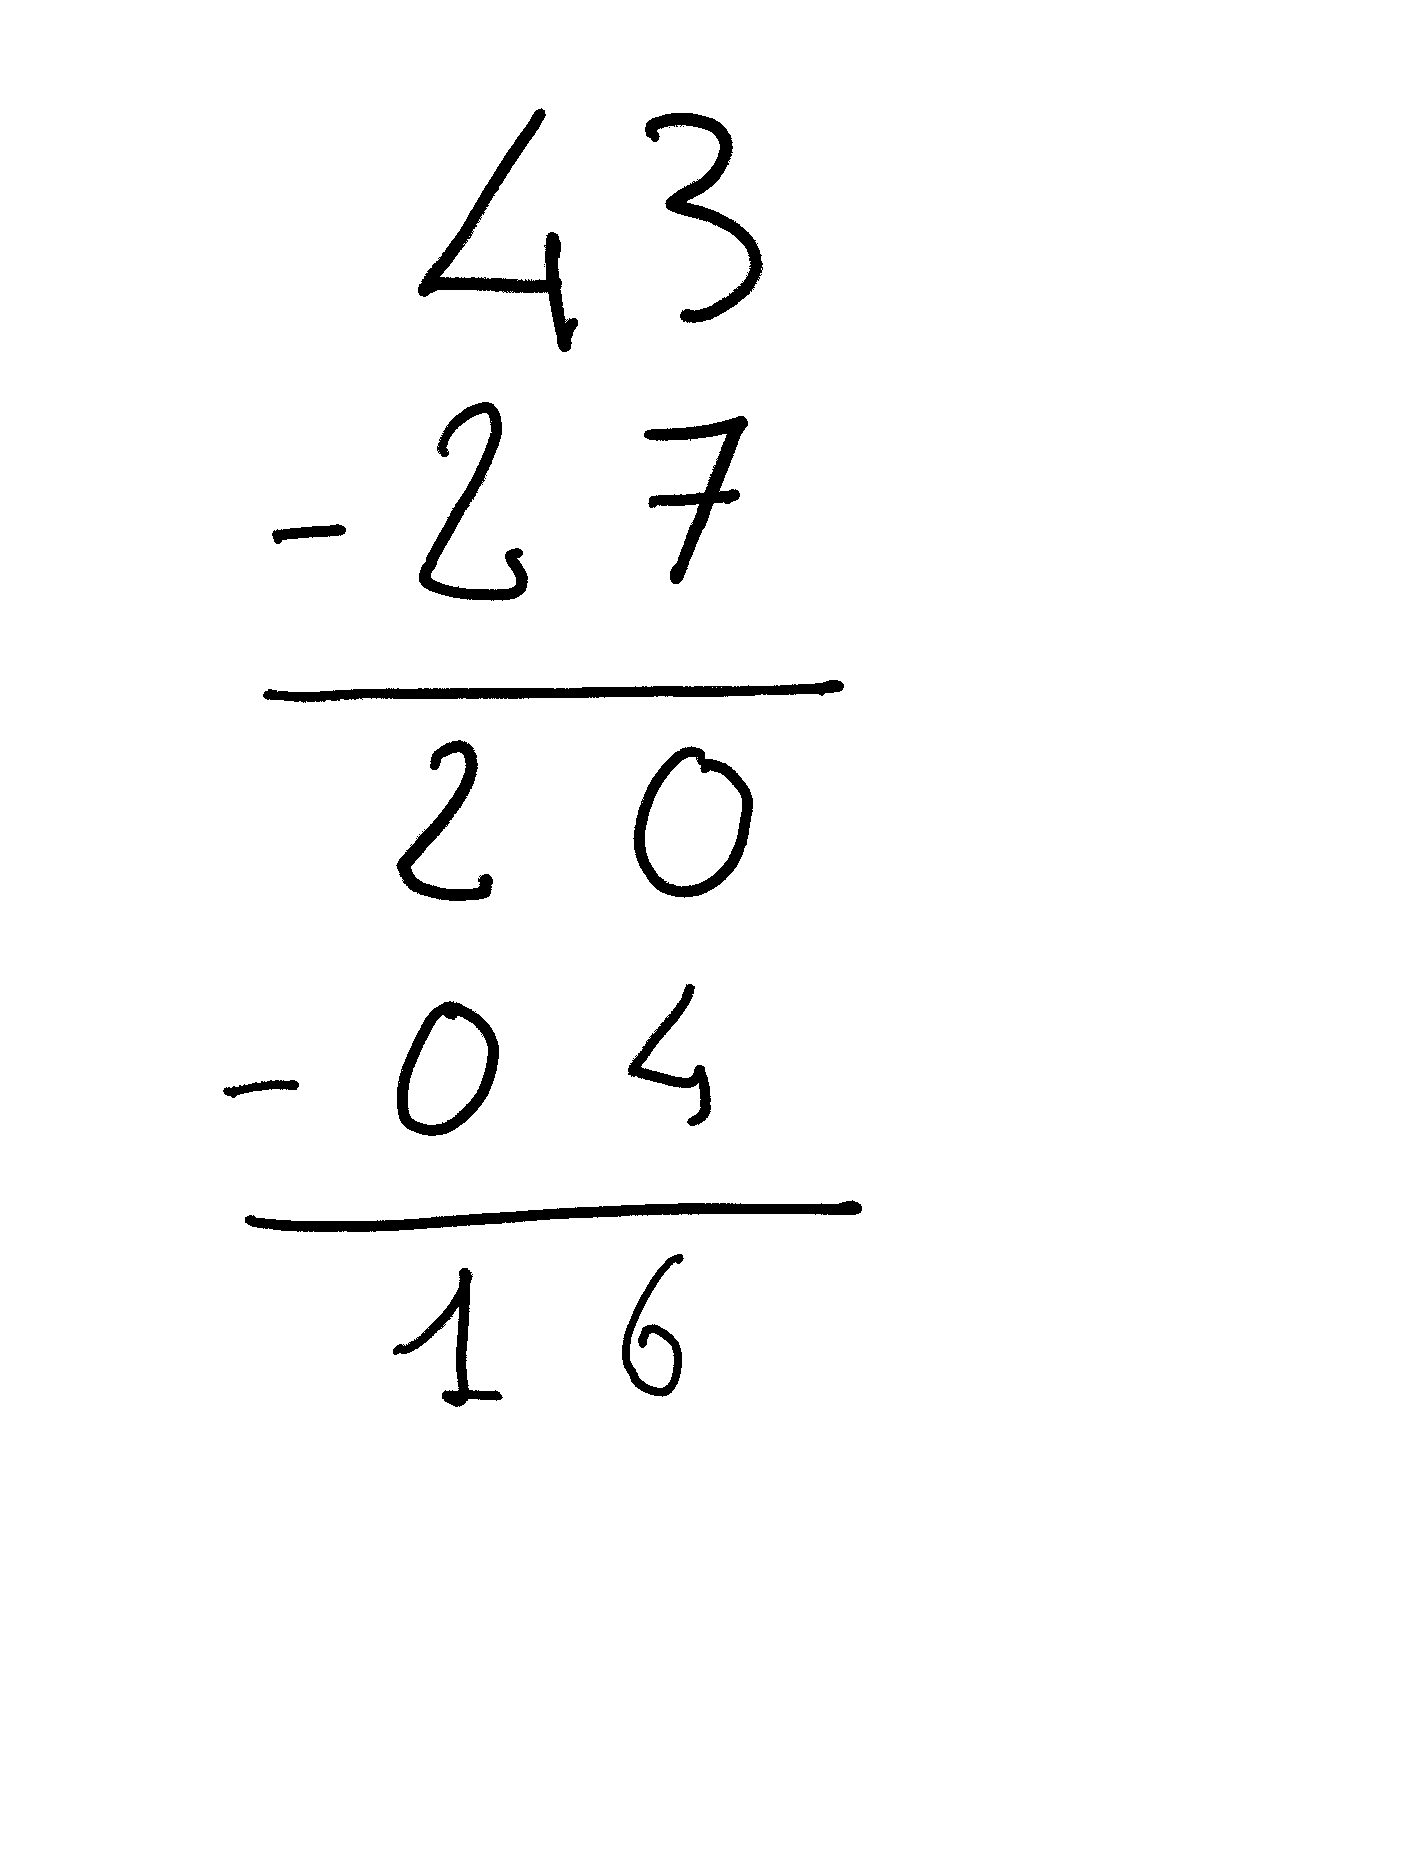 43
- 27
20
- 04
16